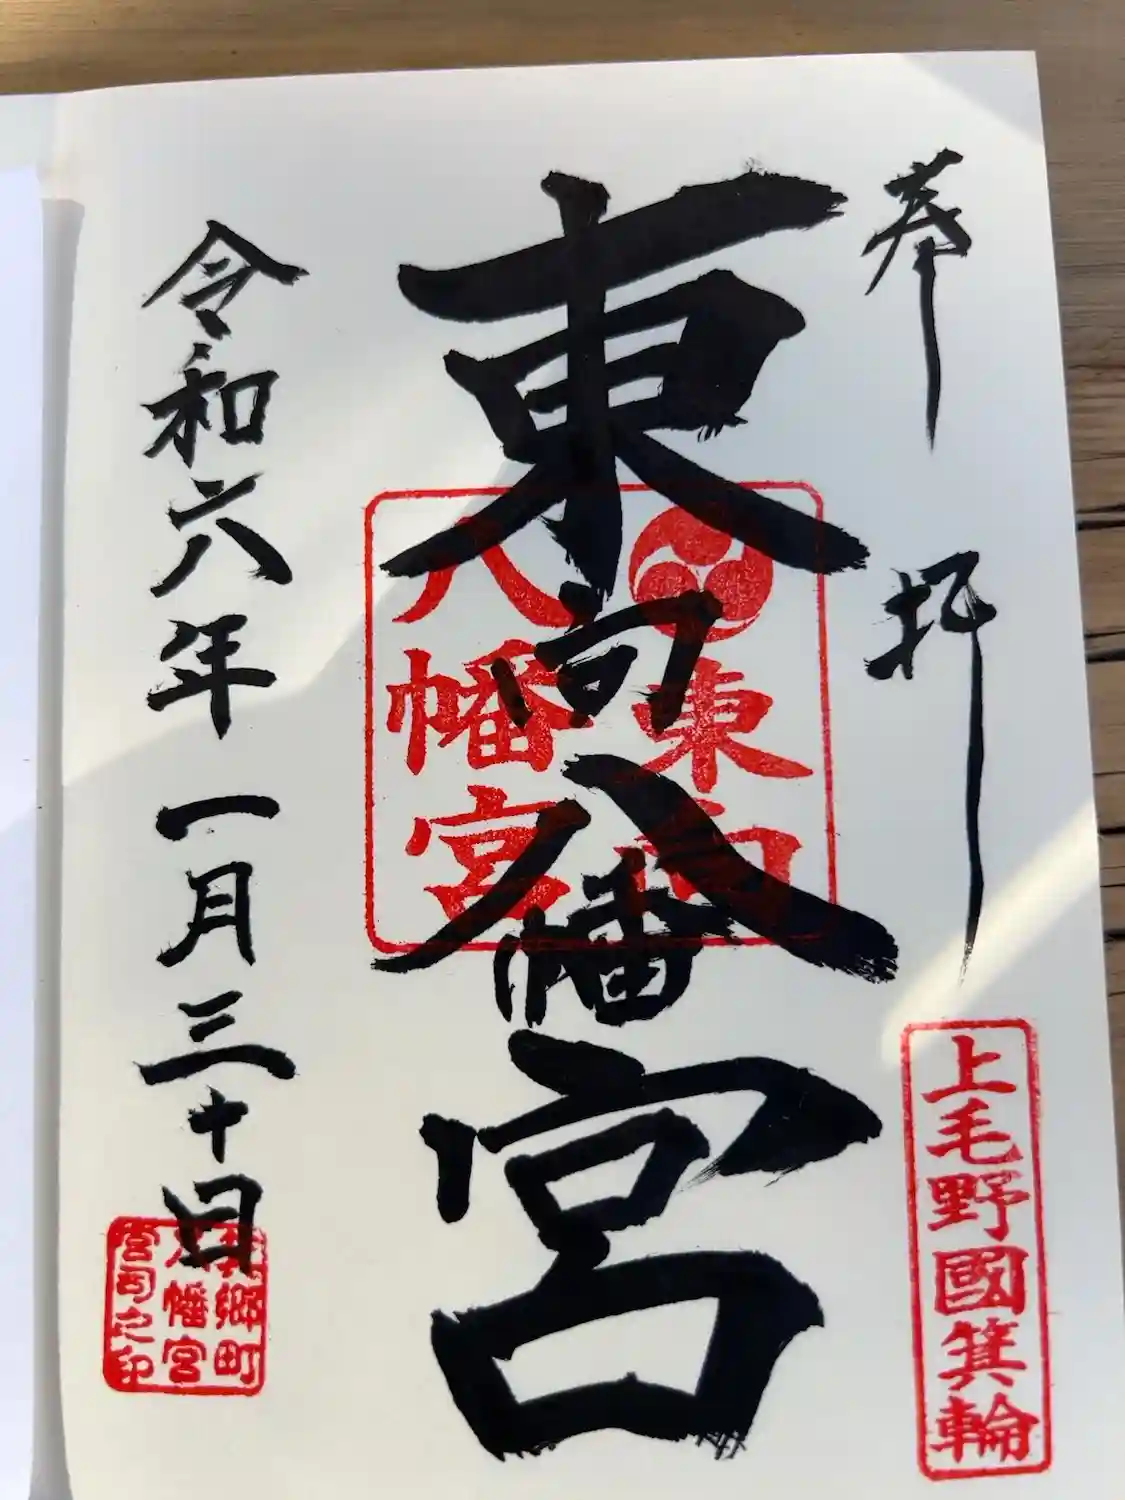 奉拝
上毛野國箕輪
東向八幡宮
東向
八幡宮
令和六年一月三十日
箕郷町
八幡宮
宮司之印